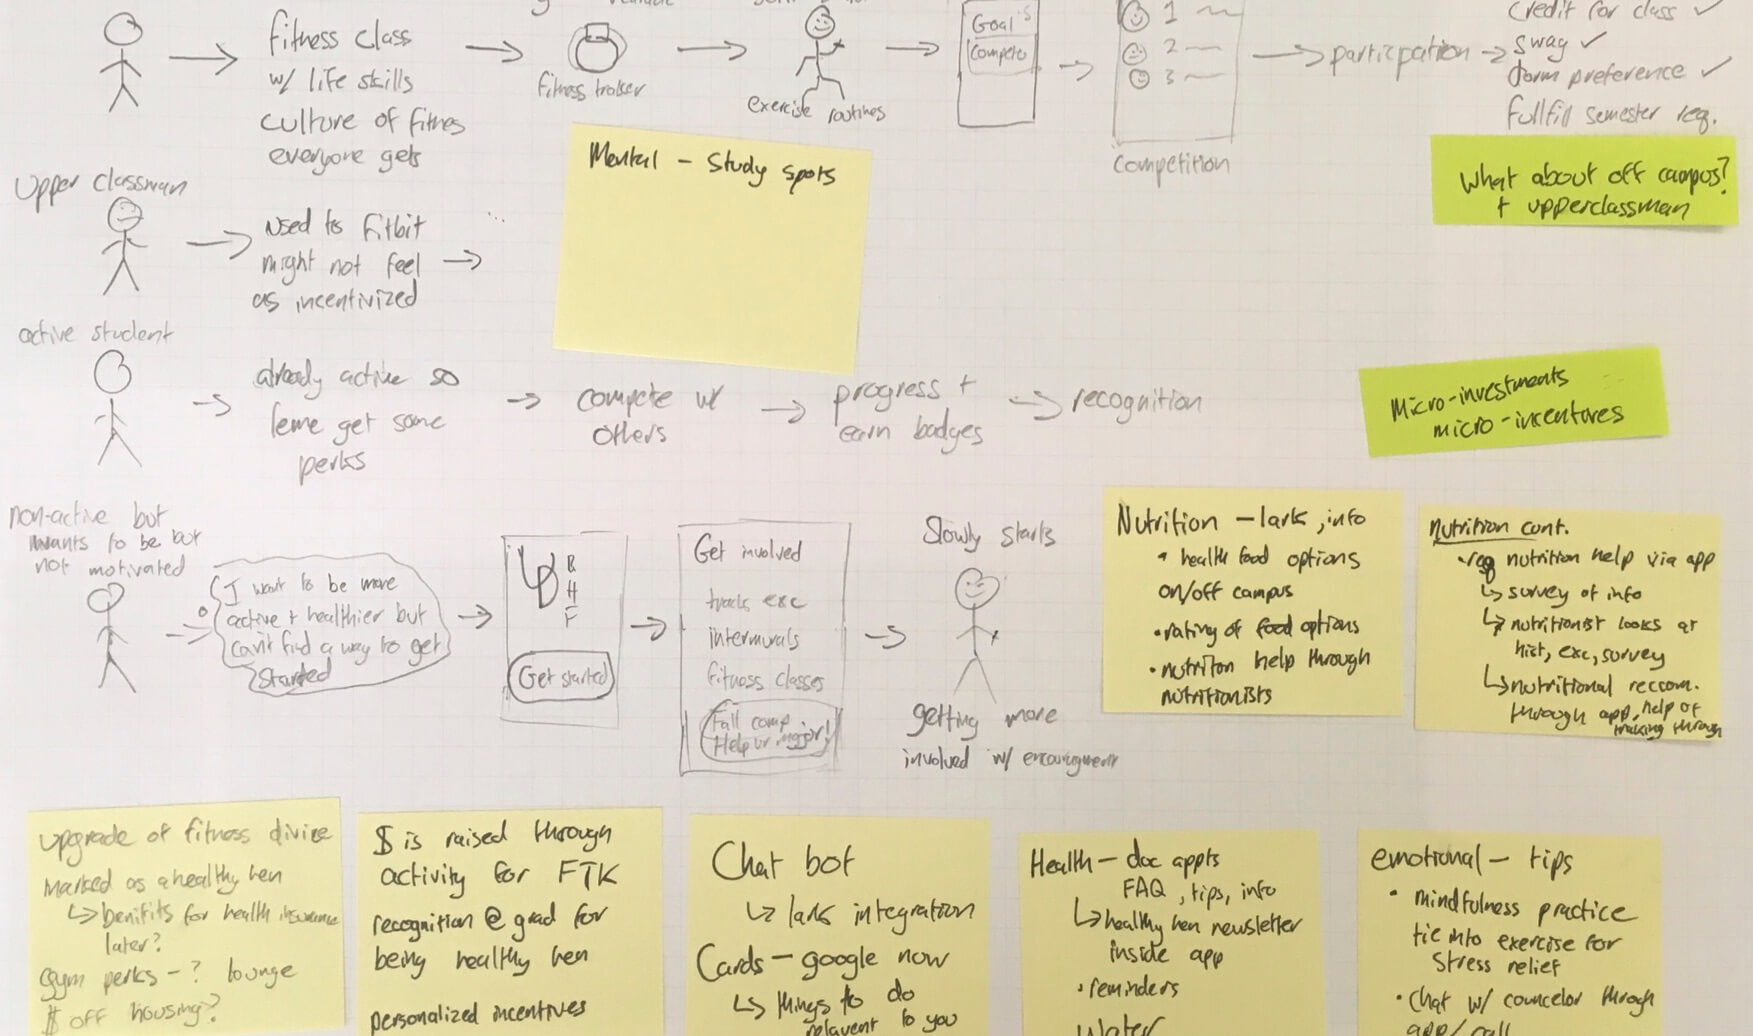 fitness class
w/ life skills
culture of fitnes
everyone gets
fitness traker
exercise routines
Goal's
Compete
1
2
3
Competition
particpation
Credit for class ✓
swag ✓
dorm preference ✓
fullfil semester req.
Mental - Study spots
What about off campus?
+ upperclassman
Upper classman
used to fitbit
might not feel
as incentivized
active student
already active so
leme get some
perks
compete w/
others
progress +
earn badges
recognition
Micro-investments
micro-incentives
non-active but
wants to be but
not motivated
I want to be more
active + healthier but
can't find a way to get
started
B
H
F
Get started
Get involved
track exc
intermurals
fitness classes
Fall comp
Help ur major!
Slowly starts
getting more
involved w/ encouragment
Nutrition - lark, info
• health food options
on/off campus
• rating of food options
• nutriton help through
nutritionists
Nutrition cont.
• req nutrition help via app
↳ survey of info
↳ nutritionist looks at
hist, exc, survey
↳ nutritional reccom.
through app, help of
tracking through
upgrade of fitness divice
Marked as a healthy hen
↳ benifits for health insurance
later?
Gym perks - ? lounge
$ off housing?
$ is raised through
activity for FTK
recognition @ grad for
being healthy hen
personalized incentives
Chat bot
↳ lark integration
Cards - google now
↳ things to do
relavent to you
Health - doc appts
FAQ, tips, info
↳ healthy hen newsletter
inside app
• reminders
Water
emotional - tips
• mindfulness practice
tie into exercise for
stress relief
• chat w/ councelor through
app/call